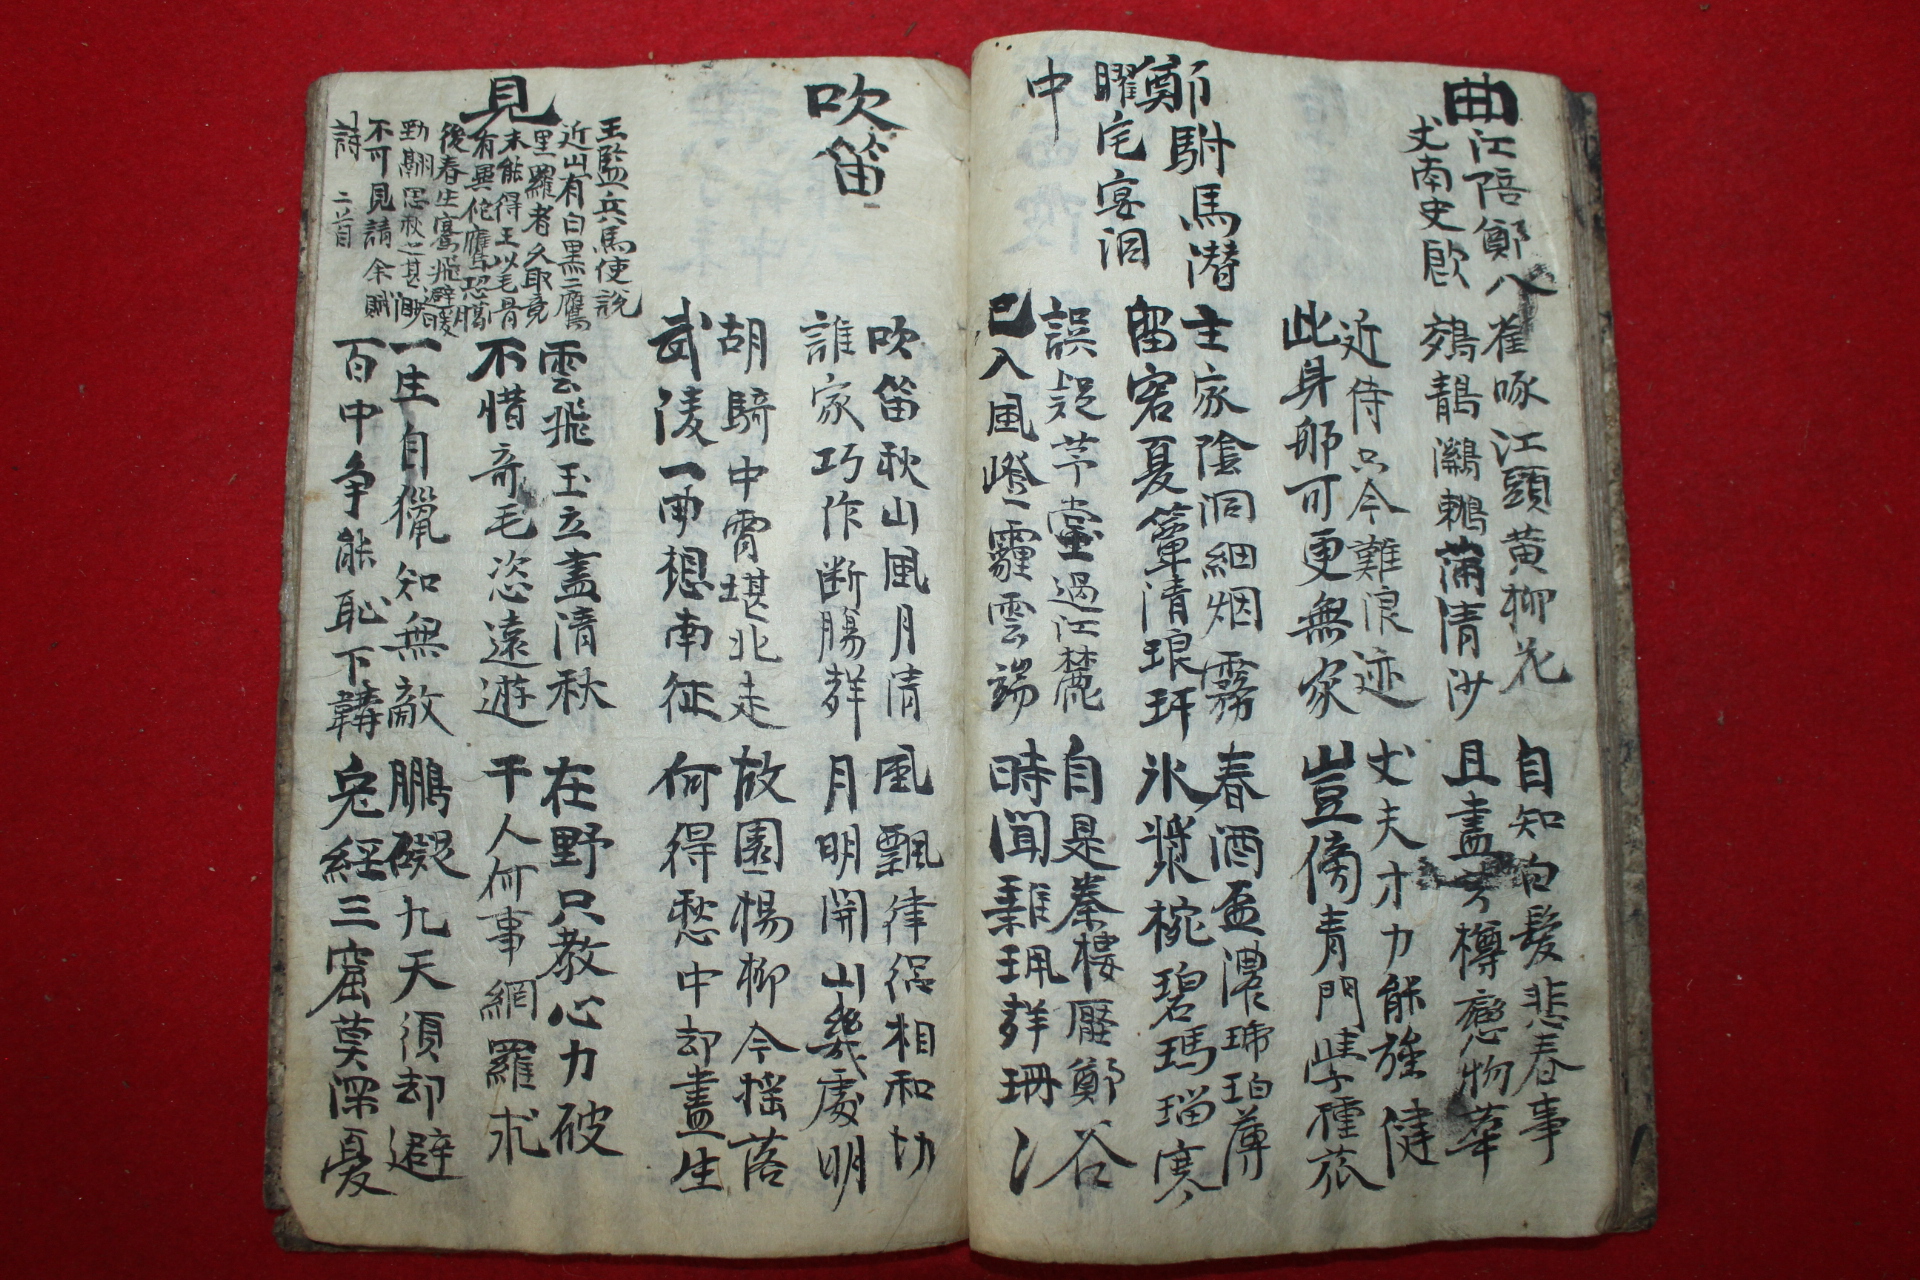 曲江陪鄭八
丈南史飮
雀啄江頭黃柳花
鵁鶄鸂鶒蒲清沙
自知白髮悲春事
且盡芳樽戀物華
近侍只今難浪迹
此身那可更無家
丈夫才力能強健
豈傍青門學種苽
鄭駙馬潛
曜宅宴洞
中
主家陰洞細烟霧
留客夏簟清琅玕
春酒盃濃琥珀薄
氷漿椀碧瑪瑙寒
誤疑茅堂過江麓
已入風磴霾雲端
自是秦樓壓鄭谷
時聞雜珮聲珊〻
吹笛
吹笛秋山風月清
誰家巧作断腸聲
風飄律呂相和切
月明開山幾處明
胡騎中宵堪北走
武陵一曲想南征
故園楊柳今摇落
何得愁中却盡生
見
王監兵馬使說
近山有白黑二鷹
里羅者久取竟
未能得王以毛骨
有異佗鷹恐臘
後春生騫飛避暖
勁翮思秋之甚眇
不可見請余賦
詩 二首
雲飛玉立盡清秋
不惜奇毛恣遠遊
在野只教心力破
千人何事網羅求
一生自獵知無敵
百中争能恥下韝
鵬礙九天須却避
兔經三窟莫深憂